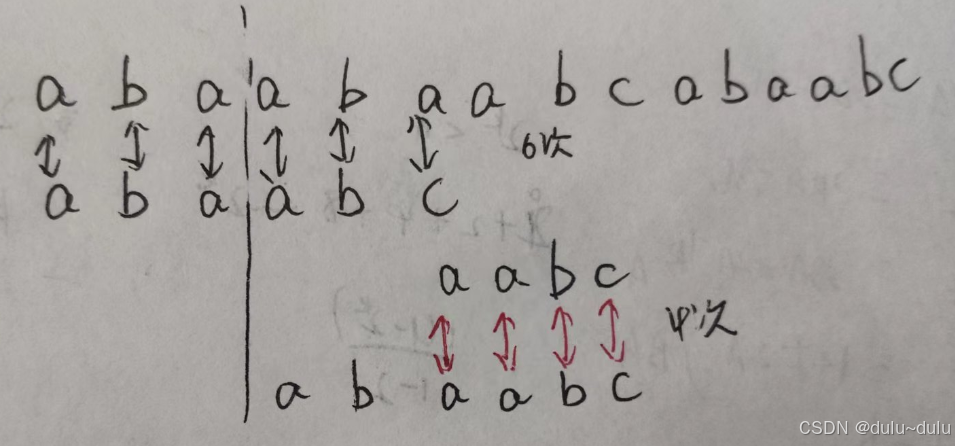 a b a a b a a b c a b a a b c
6次
a b a a b c
a a b c
4次
a b a a b c
CSDN @dulu~dulu